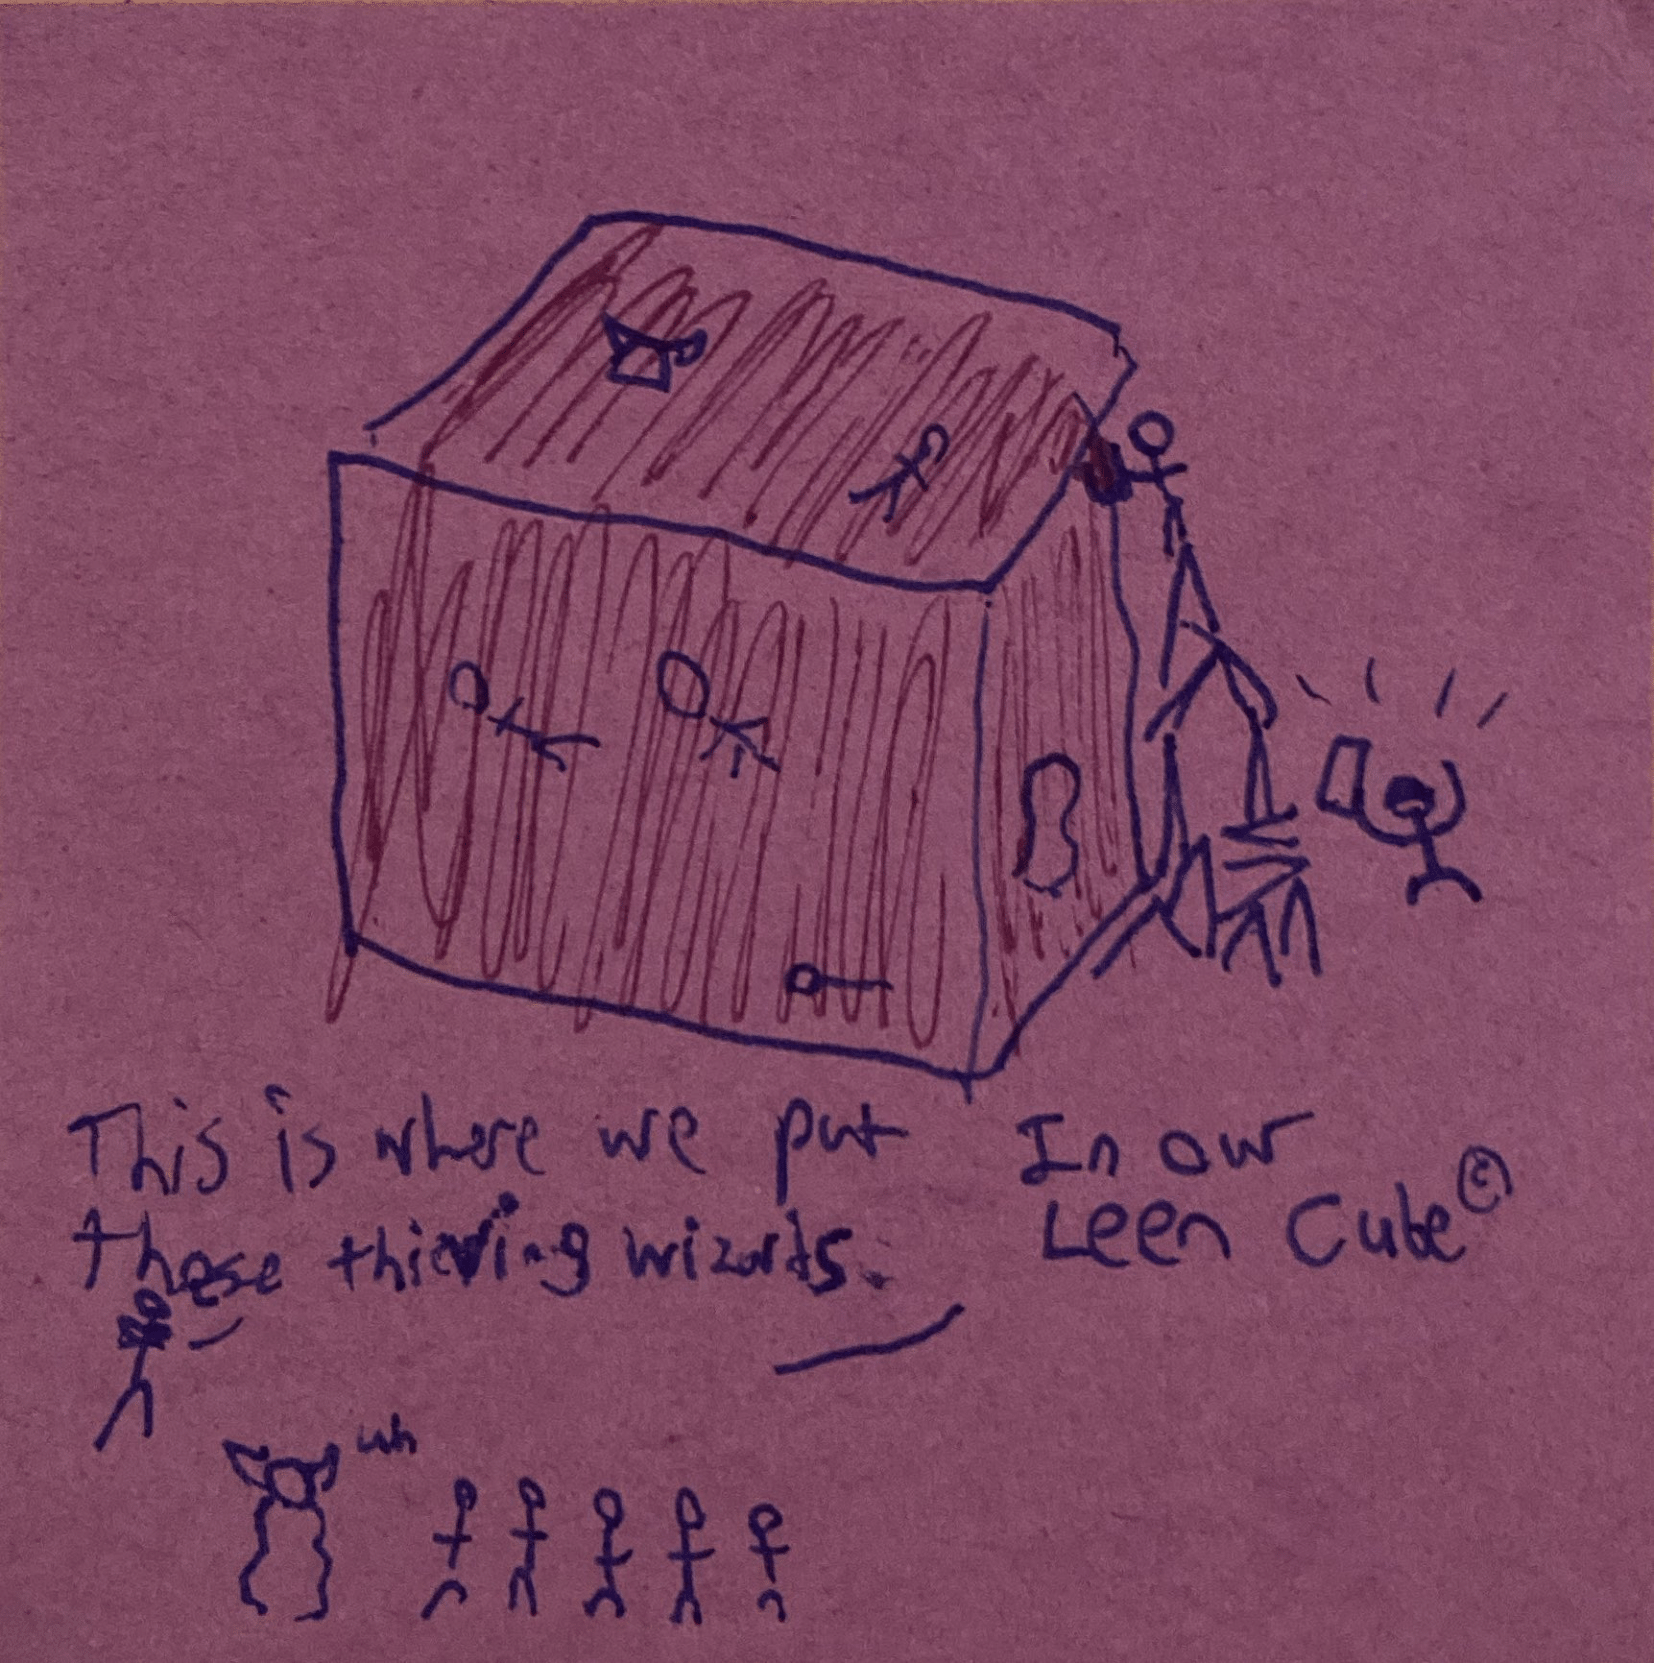 This is where we put
these thieving wizards.
In our
Leen Cube©
uh